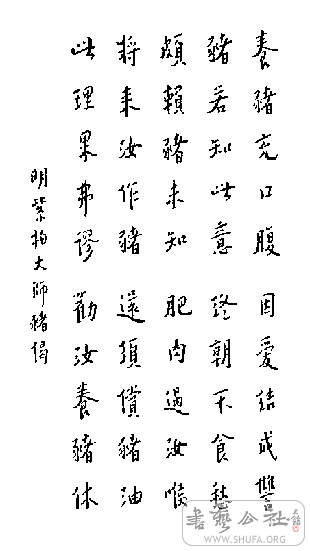 養豬充口腹因愛結成讐
豬若知此意終朝不食愁
頗賴豬未知肥肉過汝喉
將来汝作豬還須償豬油
此理果弗謬勸汝養豬休
明紫柏大師豬偈
書藝公社
WWW.SHUFA.ORG